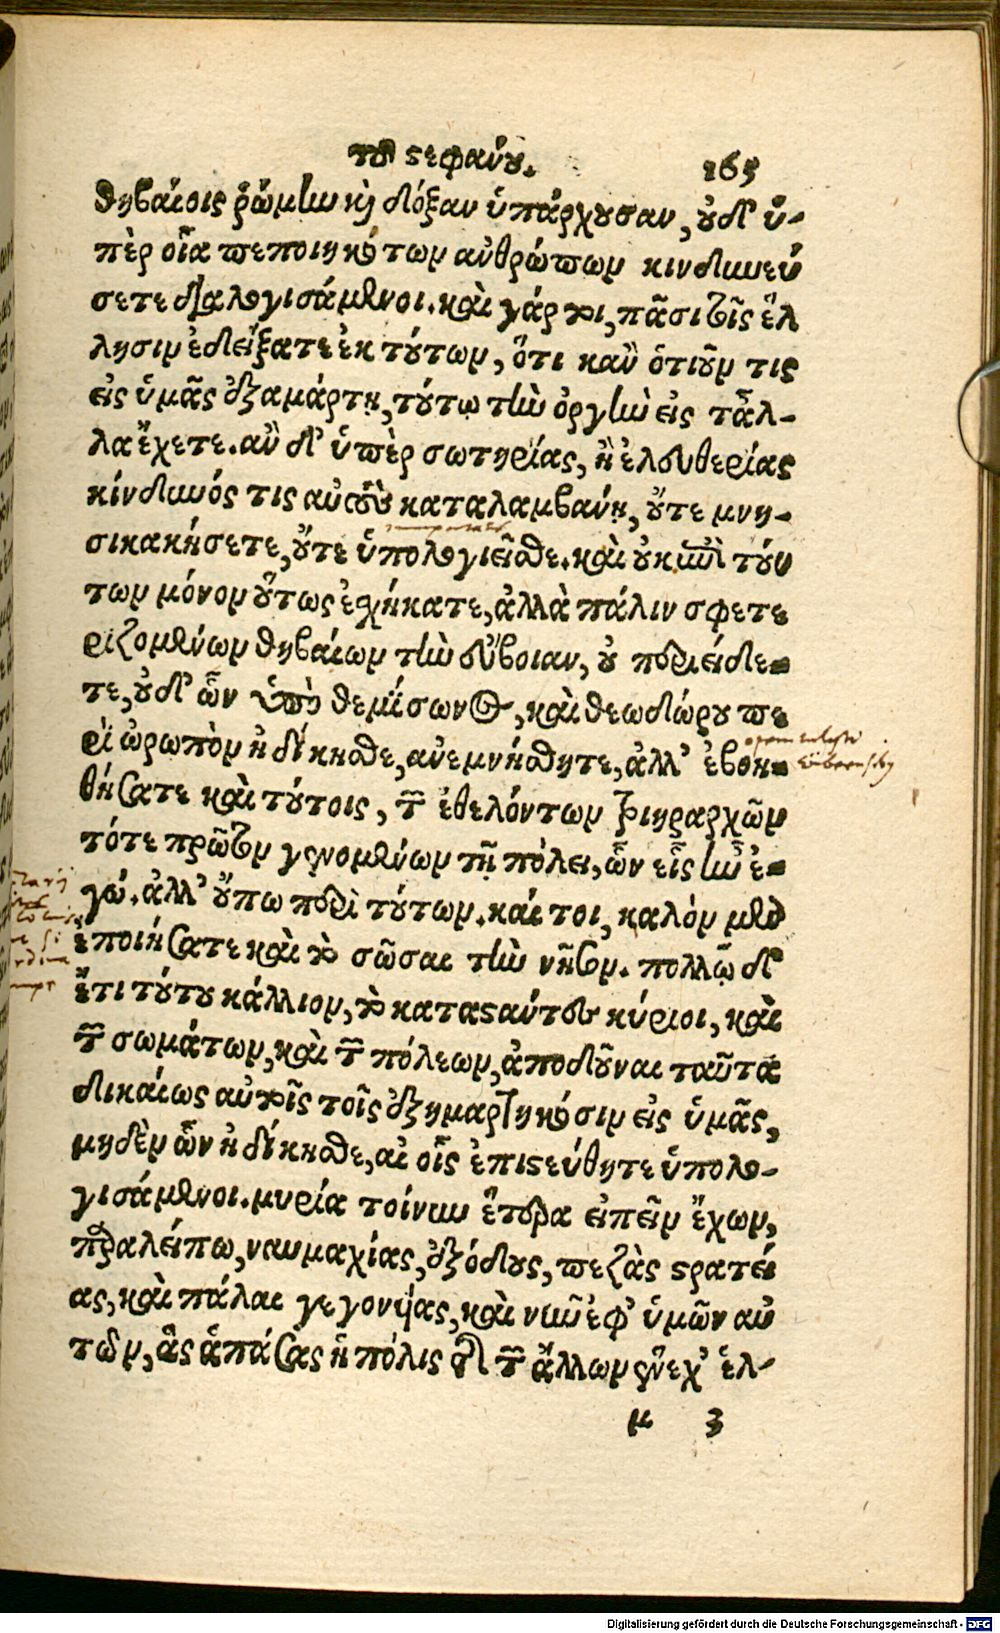 τοῦ στεφάνου.
165
θηβαίοις ῥώμην καὶ δόξαν ὑπάρχουσαν, οὐδ' ὑ-
πὲρ οἷα πεποιηκότων ἀνθρώπων κινδυνεύ
σετε διαλογισάμενοι. καὶ γάρ τοι, πᾶσι τοῖς ἕλ
λησιν ἐδείξατε ἐκ τούτων, ὅτι κἂν ὁτιοῦν τις
εἰς ὑμᾶς ἐξαμάρτῃ, τούτῳ τὴν ὀργὴν εἰς τἆλ-
λα ἔχετε. ἂν δ' ὑπὲρ σωτηρίας, ἢ ἐλευθερίας
κίνδυνός τις αὐτοὺς καταλαμβάνῃ, οὔτε μνη-
σικακήσετε, οὔτε ὑπολογιεῖσθε. καὶ οὐκ ἐπὶ τού
των μόνον οὕτως ἐσχήκατε, ἀλλὰ πάλιν σφετε
ριζομένων θηβαίων τὴν εὔβοιαν, οὐ περιείδε-
τε, οὐδ' ὧν ὑπὸ θεμίσωνος, καὶ θεωδώρου πε
ρὶ ὠρωπὸν ἠδίκησθε, ἀνεμνήσθητε, ἀλλ' ἐβοη-
θήσατε καὶ τούτοις, τῶν ἐθελόντων τριηραρχῶν
τότε πρῶτον γενομένων τῇ πόλει, ὧν εἷς ἦν ἐ-
γώ. ἀλλ' οὔπω περὶ τούτων. καί τοι, καλὸν μὲν
ἐποιήσατε καὶ τὸ σῶσαι τὴν νῆσον. πολλῷ δ'
ἔτι τούτου κάλλιον, τὸ καταστάντες κύριοι, καὶ
τῶν σωμάτων, καὶ τῶν πόλεων, ἀποδοῦναι ταῦτα
δικαίως αὐτοῖς τοῖς ἐξημαρτηκόσιν εἰς ὑμᾶς,
μηδὲν ὧν ἠδίκησθε, ἐν οἷς ἐπιστεύθητε ὑπολο-
γισάμενοι. μυρία τοίνυν ἕτερα εἰπεῖν ἔχων,
παραλείπω, ναυμαχίας, ἐξόδους, πεζὰς στρατεί
ας, καὶ πάλαι γεγονυίας, καὶ νῦν ἐφ' ὑμῶν αὐ
τῶν, ἃς ἁπάσας ἡ πόλις διὰ τῶν ἄλλων ἕνεχ' ἑλ-
μ 3
Digitalisierung gefördert durch die Deutsche Forschungsgemeinschaft - DFG